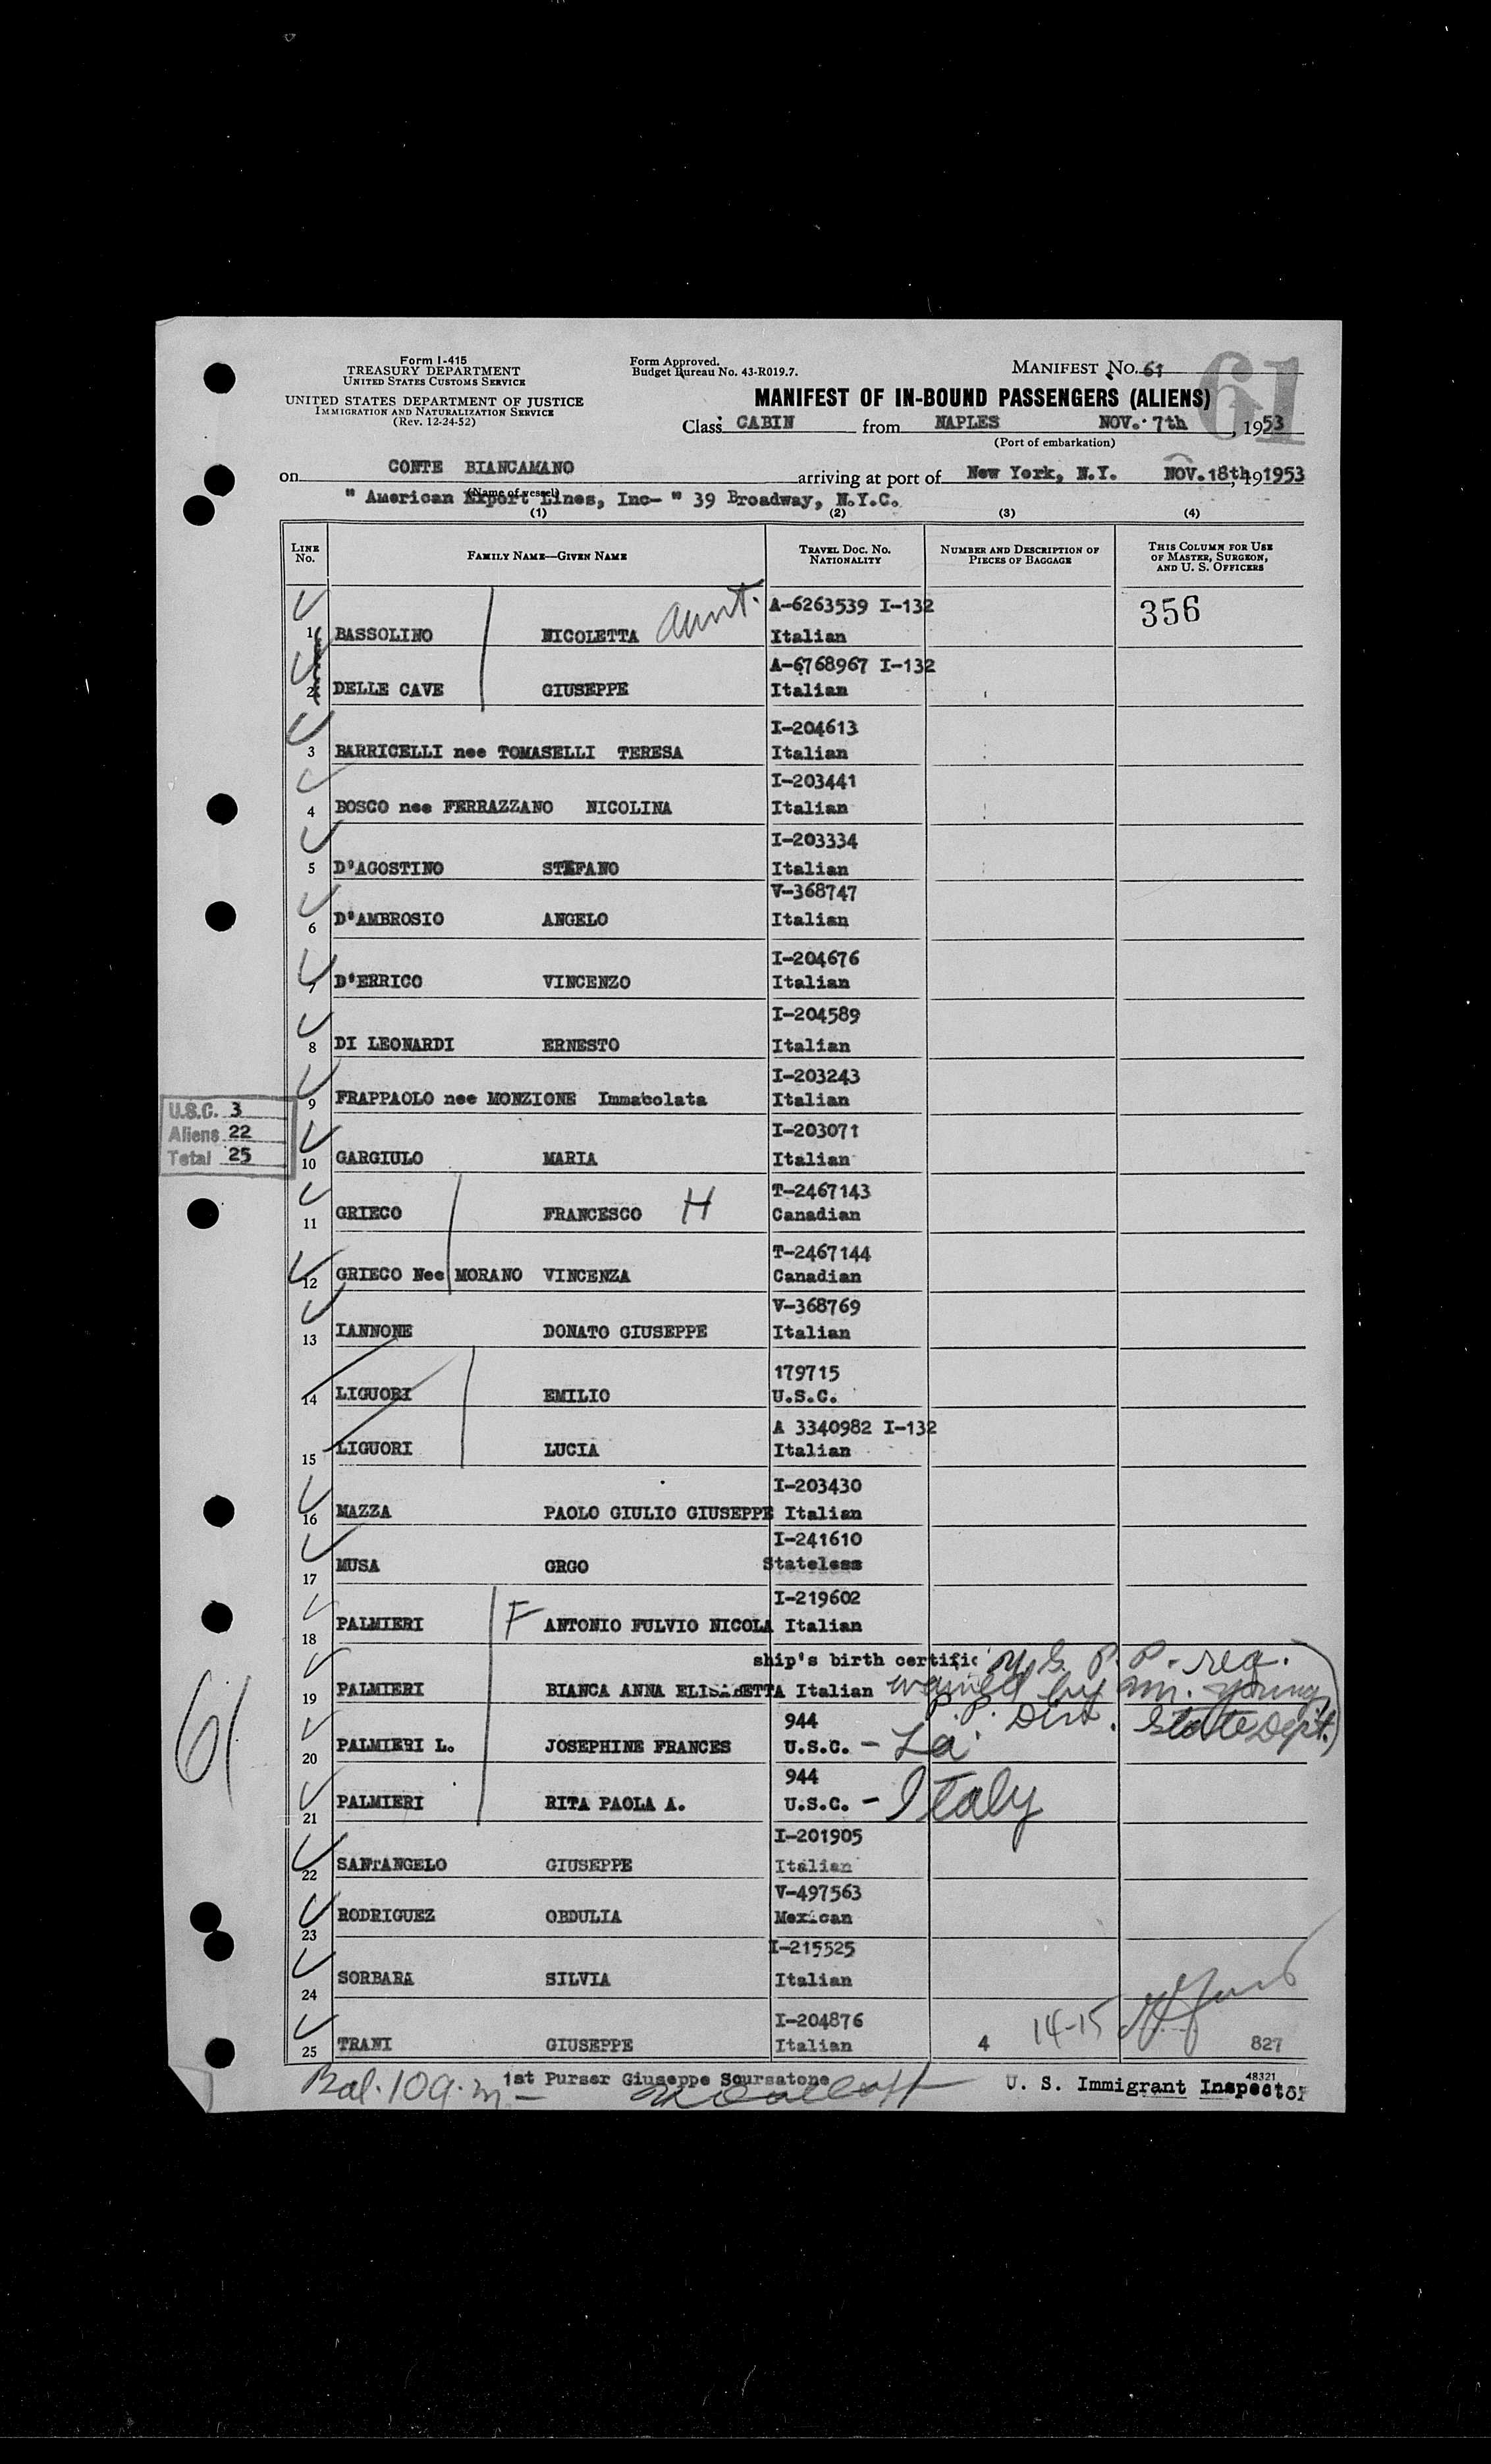 Form I-415
TREASURY DEPARTMENT
UNITED STATES CUSTOMS SERVICE
UNITED STATES DEPARTMENT OF JUSTICE
IMMIGRATION AND NATURALIZATION SERVICE
(Rev. 12-24-52)
Form Approved.
Budget Bureau No. 43-R019.7.
MANIFEST NO. 61
61
MANIFEST OF IN-BOUND PASSENGERS (ALIENS)
Class CABIN from NAPLES NOV. 7th, 1953
(Port of embarkation)
on CONTE BIANCAMANO arriving at port of New York, N.Y. NOV. 18th, 1953
(Name of vessel)
" American Export Lines, Inc- " 39 Broadway, N.Y.C.
(1) (2) (3) (4)
LINE NO. FAMILY NAME—GIVEN NAME TRAVEL DOC. NO. NATIONALITY NUMBER AND DESCRIPTION OF PIECES OF BAGGAGE THIS COLUMN FOR USE OF MASTER, SURGEON, AND U. S. OFFICERS
A-6263539 I-132 356
1 BASSOLINO NICOLETTA aunt. Italian
A-6768967 I-132
2 DELLE CAVE GIUSEPPE Italian
I-204613
3 BARRICELLI nee TOMASELLI TERESA Italian
I-203441
4 BOSCO nee FERRAZZANO NICOLINA Italian
I-203334
5 D'AGOSTINO STEFANO Italian
V-368747
6 D'AMBROSIO ANGELO Italian
I-204676
7 D'ERRICO VINCENZO Italian
I-204589
8 DI LEONARDI ERNESTO Italian
I-203243
9 FRAPPAOLO nee MONZIONE Immacolata Italian
U.S.C. 3
Aliens 22
Total 25
I-203071
10 GARGIULO MARIA Italian
T-2467143
11 GRIECO FRANCESCO H Canadian
T-2467144
12 GRIECO Nee MORANO VINCENZA Canadian
V-368769
13 IANNONE DONATO GIUSEPPE Italian
179715
14 LIGUORI EMILIO U.S.C.
A 3340982 I-132
15 LIGUORI LUCIA Italian
I-203430
16 MAZZA PAOLO GIULIO GIUSEPPE Italian
I-241610
17 MUSA GRGO Stateless
I-219602
18 PALMIERI F ANTONIO FULVIO NICOLA Italian
ship's birth certific U.S. P.P. req.
19 PALMIERI BIANCA ANNA ELISABETTA Italian waived by Mr. Young,
P.P. Div. State Dept.)
944
20 PALMIERI L. JOSEPHINE FRANCES U.S.C. - La
944
21 PALMIERI RITA PAOLA A. U.S.C. - Italy
61
I-201905
22 SANTANGELO GIUSEPPE Italian
V-497563
23 RODRIGUEZ OBDULIA Mexican
I-215525
24 SORBARA SILVIA Italian
I-204876
25 TRANI GIUSEPPE Italian 4 14-15 827
Bal. 109.m.- 1st Purser Giuseppe Scursatone
48321
U. S. Immigrant Inspector